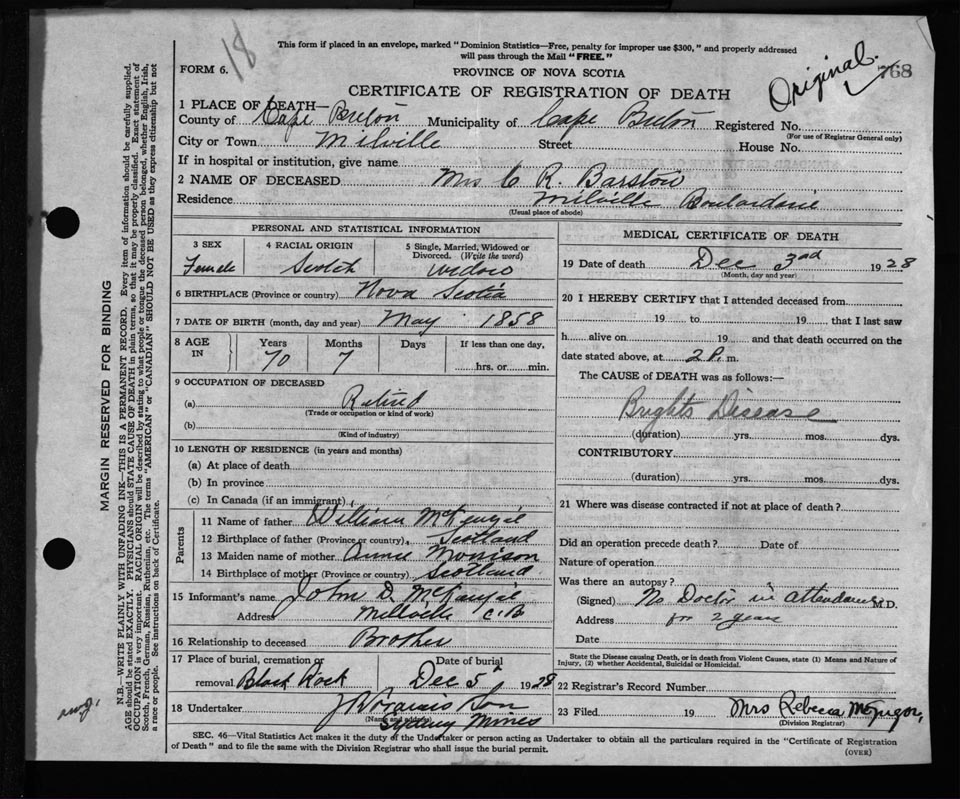 18
This form if placed in an envelope, marked "Dominion Statistics—Free, penalty for improper use $300," and properly addressed
will pass through the Mail "FREE."
Original
768
FORM 6.
PROVINCE OF NOVA SCOTIA
CERTIFICATE OF REGISTRATION OF DEATH
1 PLACE OF DEATH—
County of Cape Breton Municipality of Cape Breton Registered No.
(For use of Registrar General only)
City or Town Milville Street House No.
If in hospital or institution, give name
2 NAME OF DECEASED Mrs C. R. Barstow
Residence Milville Boulardarie
(Usual place of abode)
PERSONAL AND STATISTICAL INFORMATION
3 SEX 4 RACIAL ORIGIN 5 Single, Married, Widowed or
Divorced. (Write the word)
Female Scotch widow
6 BIRTHPLACE (Province or country) Nova Scotia
7 DATE OF BIRTH (month, day and year) May 1858
8 AGE IN Years Months Days If less than one day,
70 7 hrs. or min.
9 OCCUPATION OF DECEASED
(a) Retired
(Trade or occupation or kind of work)
(b)
(Kind of industry)
10 LENGTH OF RESIDENCE (in years and months)
(a) At place of death
(b) In province
(c) In Canada (if an immigrant)
Parents
11 Name of father William McKenzie
12 Birthplace of father (Province or country) Scotland
13 Maiden name of mother Annie Morrison
14 Birthplace of mother (Province or country) Scotland
15 Informant's name John D. McKenzie
Address Millville C.B
16 Relationship to deceased Brother
17 Place of burial, cremation or Date of burial
removal Black Rock Dec 5th 1928
18 Undertaker Son
(Name and address)
Sydney Mines
MEDICAL CERTIFICATE OF DEATH
19 Date of death Dec 3rd 1928
(Month, day and year)
20 I HEREBY CERTIFY that I attended deceased from
19 to 19 that I last saw
h alive on 19 and that death occurred on the
date stated above, at 2 P. m.
The CAUSE of DEATH was as follows:—
Brights Disease
(duration) yrs. mos. dys.
CONTRIBUTORY
(duration) yrs. mos. dys.
21 Where was disease contracted if not at place of death?
Did an operation precede death? Date of
Nature of operation
Was there an autopsy?
(Signed) No Doctor in attendance M.D.
Address for 2 years
Date
State the Disease causing Death, or in death from Violent Causes, state (1) Means and Nature of
Injury, (2) whether Accidental, Suicidal or Homicidal.
22 Registrar's Record Number
23 Filed 19 Mrs Rebecca McGregor,
(Division Registrar)
SEC. 46—Vital Statistics Act makes it the duty of the Undertaker or person acting as Undertaker to obtain all the particulars required in the "Certificate of Registration
of Death" and to file the same with the Division Registrar who shall issue the burial permit.
(OVER)
MARGIN RESERVED FOR BINDING
N.B.—WRITE PLAINLY WITH UNFADING INK—THIS IS A PERMANENT RECORD. Every item of information should be carefully supplied.
AGE should be stated EXACTLY. PHYSICIANS should STATE CAUSE OF DEATH in plain terms, so that it may be properly classified. Exact statement of
OCCUPATION is very important. RACIAL ORIGIN will be described by stating to what people or tongue the deceased person belonged, whether English, Irish,
Scotch, French, German, Russian, Ruthenian, etc. The terms "AMERICAN" or "CANADIAN" SHOULD NOT BE USED as they express citizenship but not
a race or people. See instructions on back of Certificate.